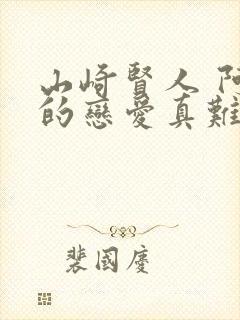 山崎賢人 阿
的戀愛真難
裴國慶